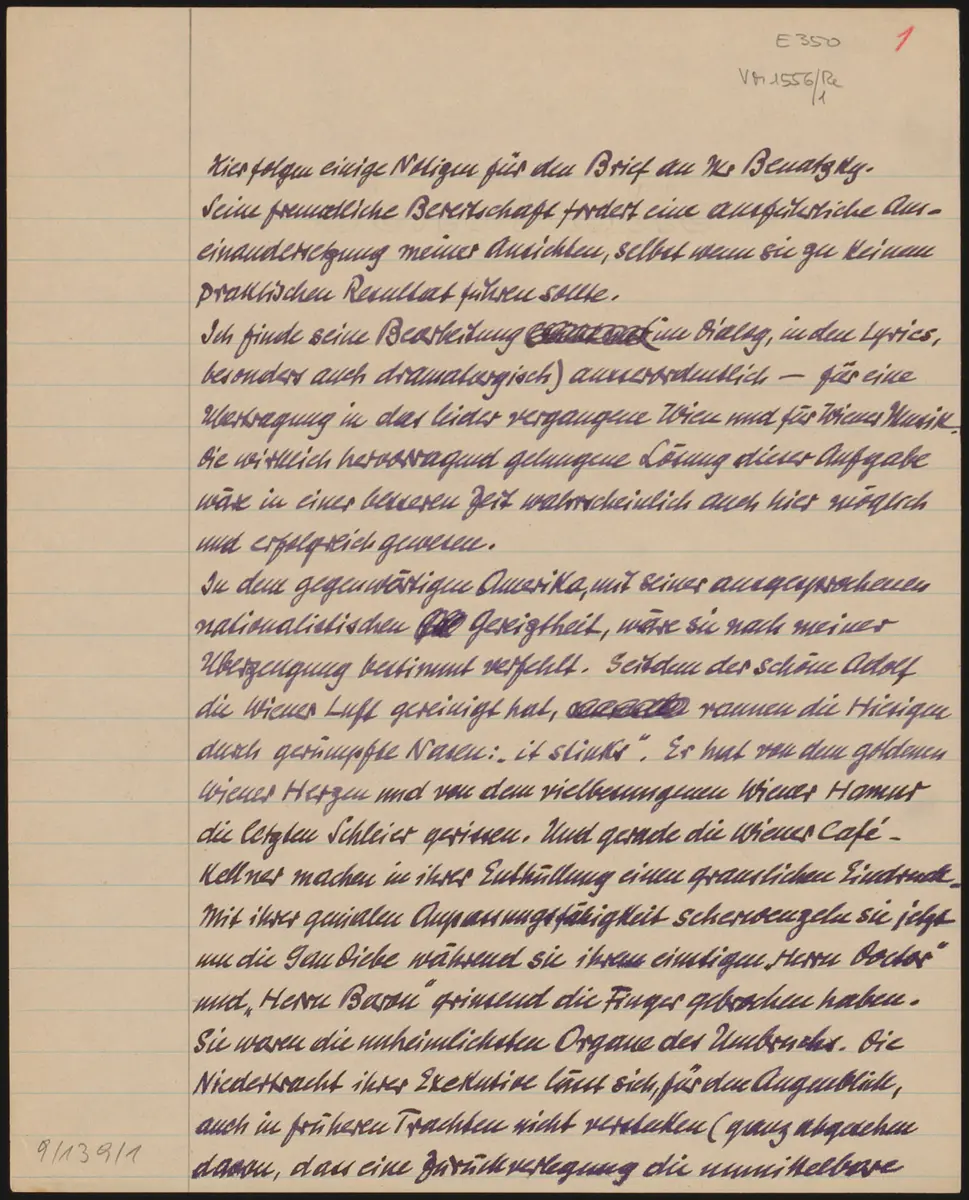 E 350
1
Vn 1556/Re
/1
Hier folgen einige Notizen für den Brief an Mr Benatzky.
Seine freundliche Bereitschaft fordert eine ausführliche Aus-
einandersetzung meiner Ansichten, selbst wenn sie zu keinem
praktischen Resultat führen sollte.
Ich finde seine Bearbeitung (im Dialog, in den Lyrics,
besonders auch dramaturgisch) ausserordentlich — für eine
Übertragung in das leider vergangene Wien und für Wiener Musik.
Die wirklich hervorragend gelungene Lösung dieser Aufgabe
wäre in einer besseren Zeit wahrscheinlich auch hier möglich
und erfolgreich gewesen.
In dem gegenwärtigen Amerika, mit seiner ausgesprochenen
nationalistischen Gereigtheit, wäre sie nach meiner
Überzeugung bestimmt verfehlt. Seitdem der schöne Adolf
die Wiener Luft gereinigt hat, raunen die Hiesigen
durch gerümpfte Nasen: „it stinks". Er hat von dem goldenen
Wiener Herzen und von dem vielbesungenen Wiener Hamur
die letzten Schleier gerissen. Und gerade die Wiener Café-
Kellner machen in ihrer Enthüllung einen grauslichen Eindruck.
Mit ihrer genialen Anpassungsfähigkeit scherwenzeln sie jetzt
um die Gau Diebe während sie ihrem einstigen „Herrn Doctor"
und „Herrn Baron" grinsend die Finger gebrochen haben.
Sie waren die unheimlichsten Organe des Umbruchs. Die
Niedertracht ihrer Exekutive lässt sich, für den Augenblick,
auch in früheren Trachten nicht verstecken (ganz abgesehen
davon, dass eine Zurückverlegung die unmittelbare
9/139/1